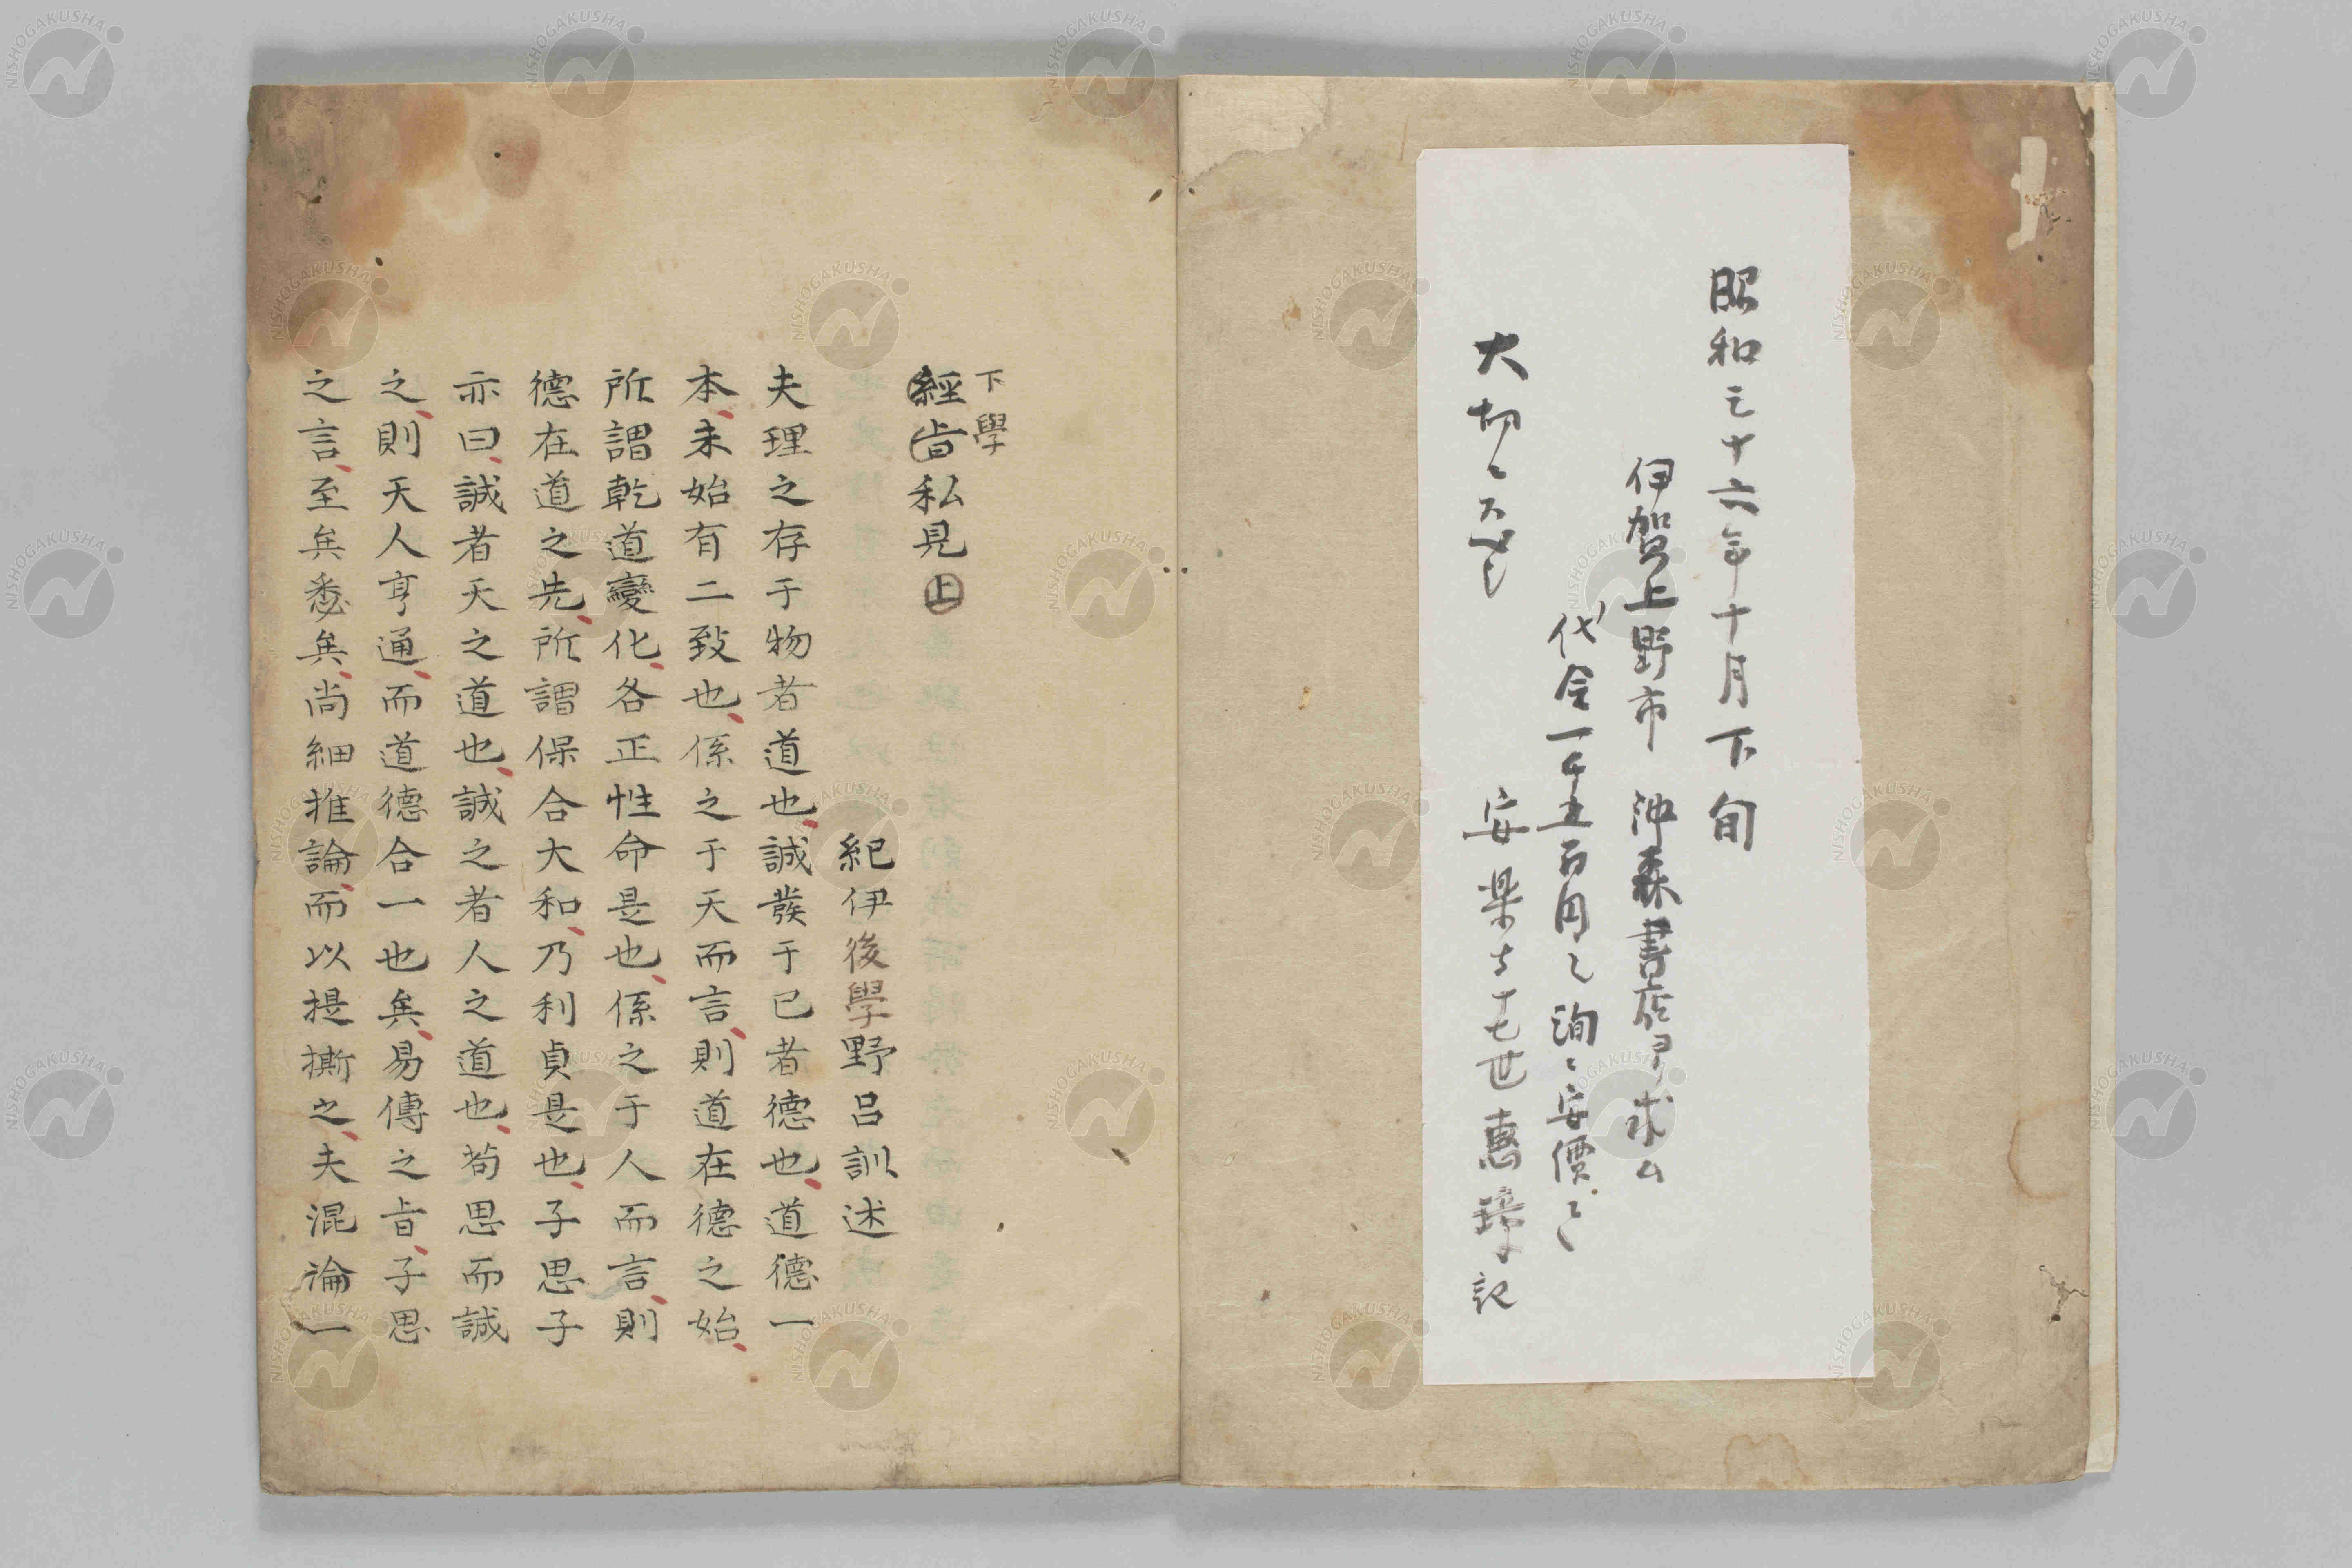 昭和三十六年十月下旬
伊賀上野市 沖森書店ヨリ求ム
代金一千五百円之 洵ニ安價
大切ニ
安楽寺十七世惠璋記
下學
經旨私見 上
紀伊後學野呂訓述
夫理之存于物者道也誠發于已者德也道德一
本未始有二致也係之于天而言則道在德之始
所謂乾道變化各正性命是也係之于人而言則
德在道之先所謂保合大和乃利貞是也子思子
亦曰誠者天之道也誠之者人之道也苟思而誠
之則天人亨通而道德合一也矣易傳之旨子思
之言至矣悉矣尚細推論而以提撕之夫混淪一
NISHOGAKUSHA